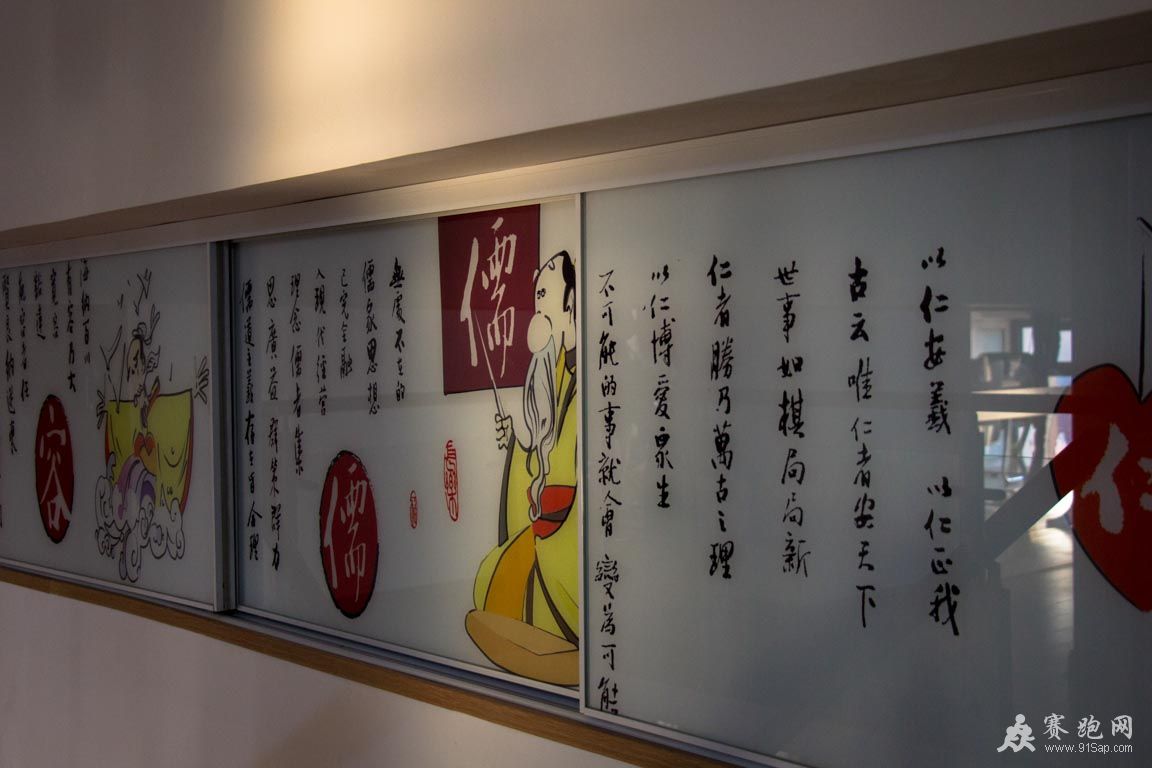 以仁安義 以仁正我
古云唯仁者安天下
世事如棋局局新
仁者勝乃萬古之理
以仁博愛眾生
不可能的事就會 變為可能
儒
長樂
儒
無處不在的
儒家思想
已完全融
入現代經營
理念 儒者集
思廣益 群策群力
儒道主義存在 合理
容
海納百川
有容乃大
寬宏
豁達
賽跑网
www.91Sap.com